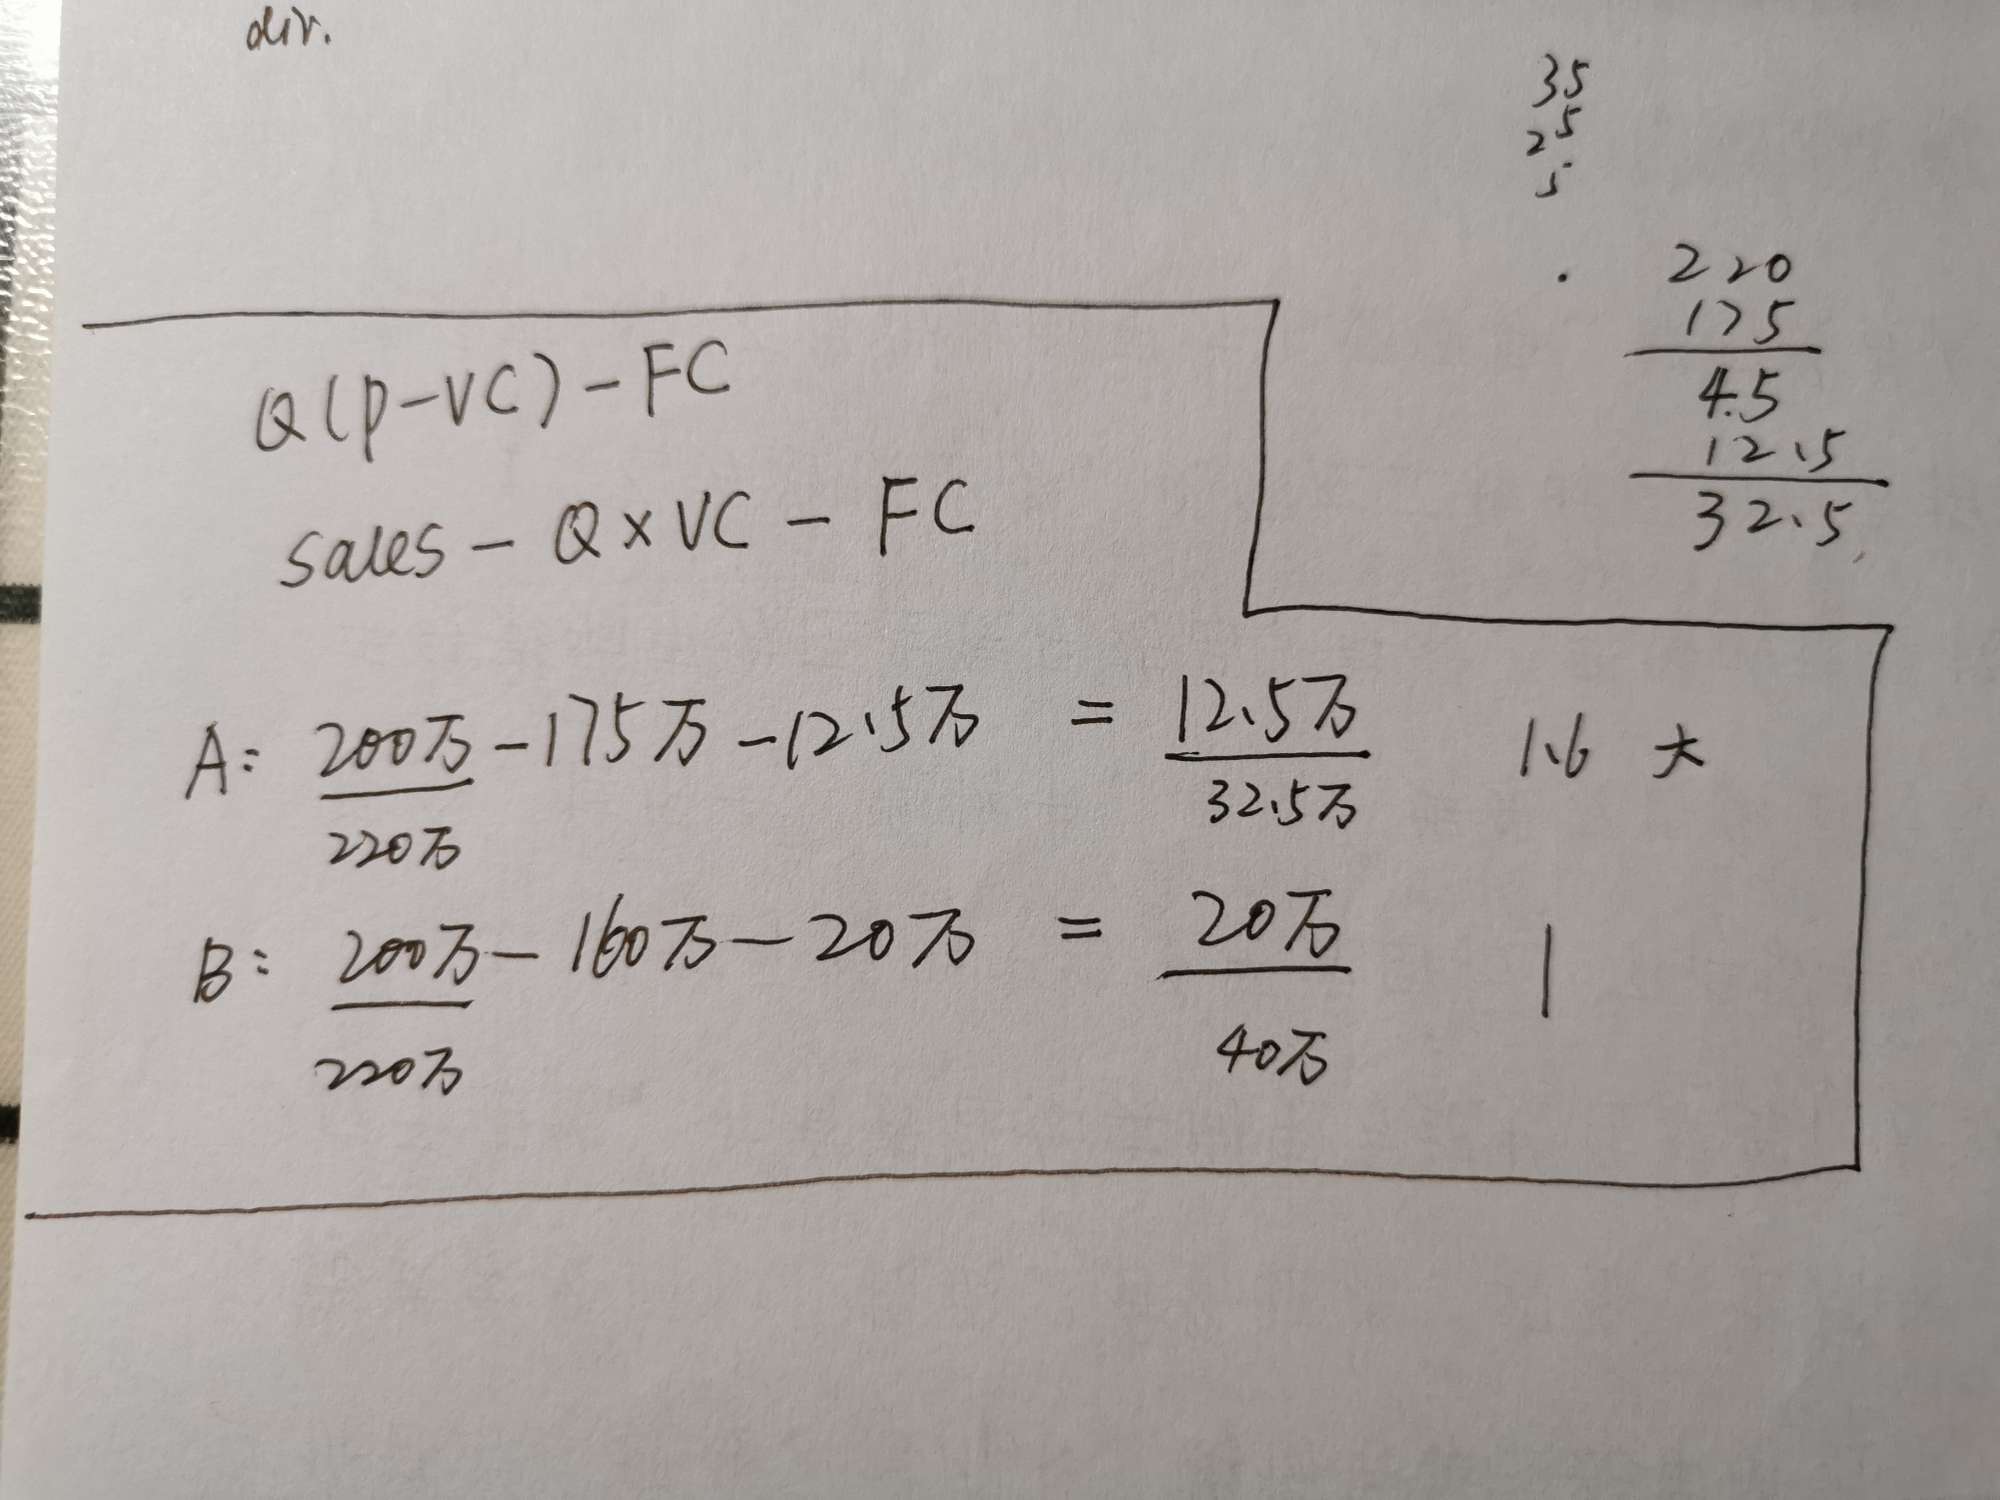 div.
35
25
5
220
175
4.5
12.5
32.5
Q(P-VC)-FC
sales - Q×VC - FC
A: 200万-175万-12.5万 = 12.5万 1.6 大
220万 32.5万
B: 200万-160万-20万 = 20万 1
220万 40万